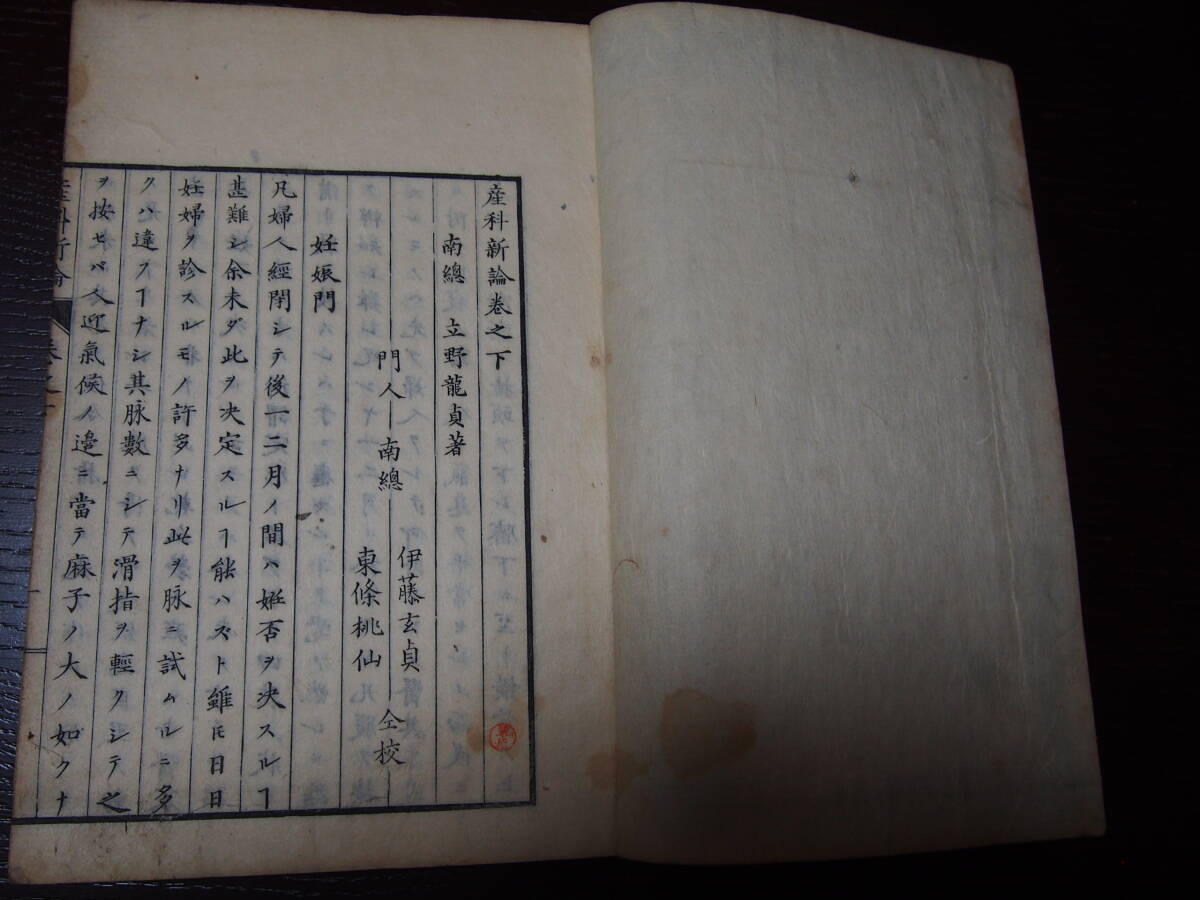 産科新論巻之下
南總 立野龍貞著
門人 南總 伊藤玄貞
東條桃仙 仝校
妊娠門
凡婦人經閉シテ後一二月ノ間ハ妊否ヲ决スルヿ
甚難シ余未ダ此ヲ决定スルヿ能ハズト雖𪜈日日
妊婦ヲ診スルモノ許多ナリ此ヲ脉ニ試ムルニ多
クハ違フヿナシ其脉數ニシテ滑指ヲ輕クシテ之
ヲ按セバ人迎氣候ノ邉ニ當テ麻子ノ大ノ如クナ
産科新論 巻之下